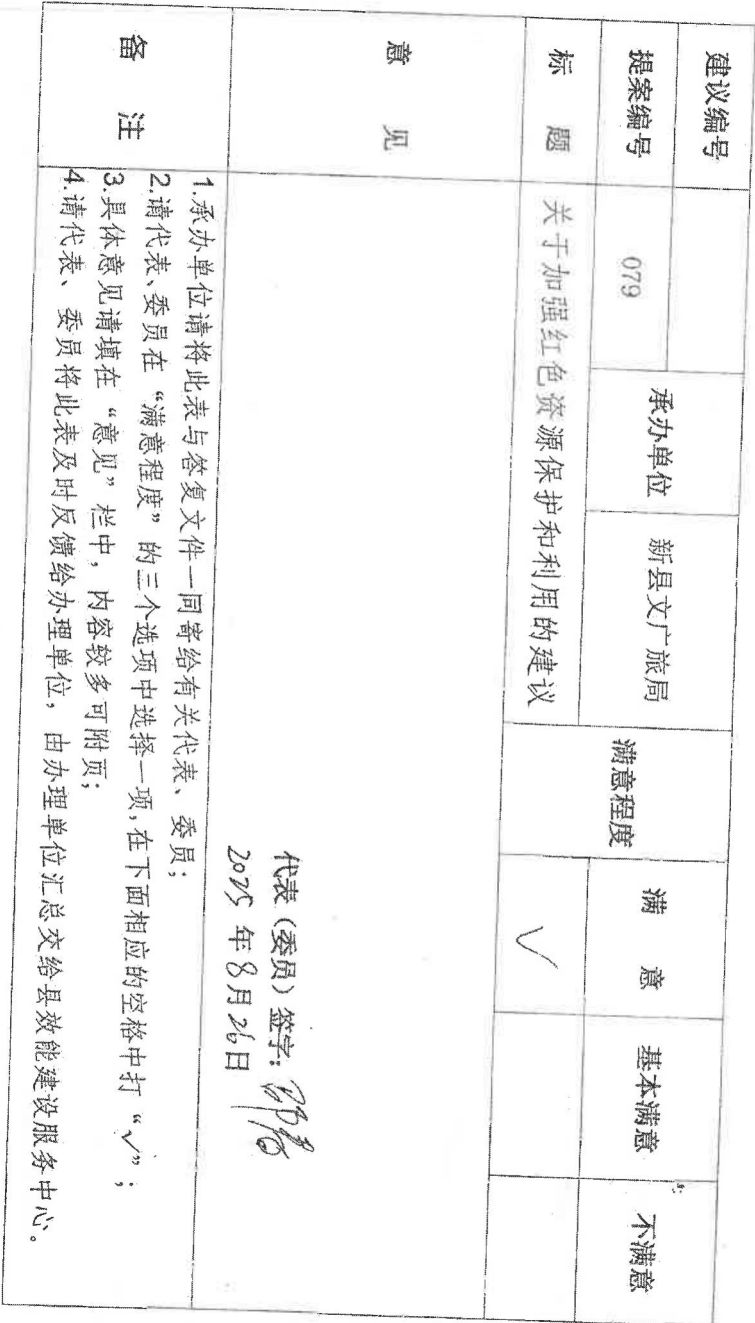 建议编号
提案编号 079 承办单位 新县文广旅局 满意程度 满意 基本满意 不满意
标题 关于加强红色资源保护和利用的建议 √
意见
代表（委员）签字：
2025年8月26日
备注
1.承办单位请将此表与答复文件一同寄给有关代表、委员；
2.请代表、委员在“满意程度”的三个选项中选择一项,在下面相应的空格中打“√”；
3.具体意见请填在“意见”栏中，内容较多可附页；
4.请代表、委员将此表及时反馈给办理单位，由办理单位汇总交给县效能建设服务中心。